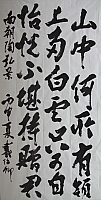 山中何所有嶺
上多白云只可自
怡悦不堪持贈君
南朝陶弘景 丙申夏